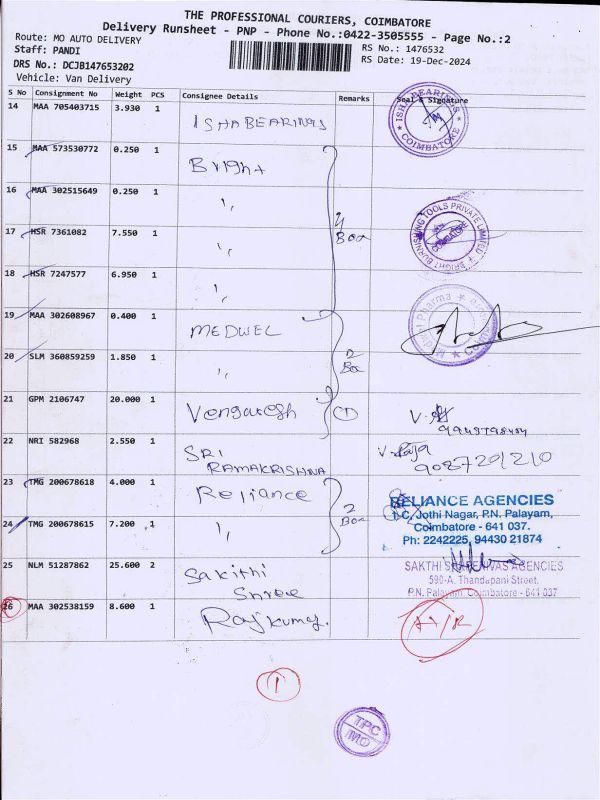 THE PROFESSIONAL COURIERS, COIMBATORE
Delivery Runsheet - PNP - Phone No.:0422-3505555 - Page No.:2
Route: MO AUTO DELIVERY
RS No.: 1476532
Staff: PANDI
RS Date: 19-Dec-2024
DRS No.: DCJB147653202
Vehicle: Van Delivery
S No Consignment No Weight PCS Consignee Details Remarks Seal & Signature
14 MAA 705403715 3.930 1 ISHA BEARINGS
ISHA BEARINGS COIMBATORE
15 MAA 573530772 0.250 1 Bright
16 MAA 302515649 0.250 1 〃
17 HSR 7361082 7.550 1 〃 4 Box
BRIGHT BURNISHING TOOLS PRIVATE LIMITED COIMBATORE
18 HSR 7247577 6.950 1 〃
19 MAA 302608967 0.400 1 MEDWEL
Pharma
20 SLM 360859259 1.850 1 〃 2 Box
21 GPM 2106747 20.000 1 Vengatesh
22 NRI 582968 2.550 1 SRI RAMAKRISHNA
23 TMG 200678618 4.000 1 Reliance
RELIANCE AGENCIES
Jothi Nagar, P.N. Palayam,
Coimbatore - 641 037.
Ph: 2242225, 94430 21874
24 TMG 200678615 7.200 1 〃 2 Box
25 NLM 51287862 25.600 2 Sakithi Shree
SAKTHI AGENCIES
590-A, Thandapani Street,
P.N. Palayam, Coimbatore - 641 037
26 MAA 302538159 8.600 1 Rajkumar
1
TPC
MO